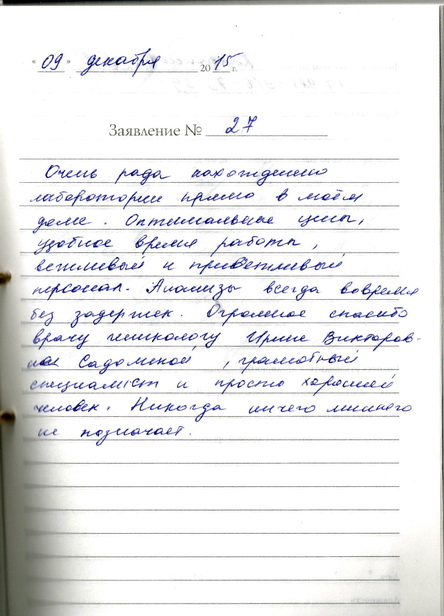 "09" декабря 2015 г.
Заявление № 27
Очень рада нахождению
лаборатории прямо в моём
доме. Оптимальные цены,
удобное время работы,
вежливый и приветливый
персонал. Анализы всегда вовремя
без задержек. Огромное спасибо
врачу гинекологу Ирине Викторов-
не Садомской, грамотный
специалист и просто хороший
человек. Никогда ничего лишнего
не назначает.